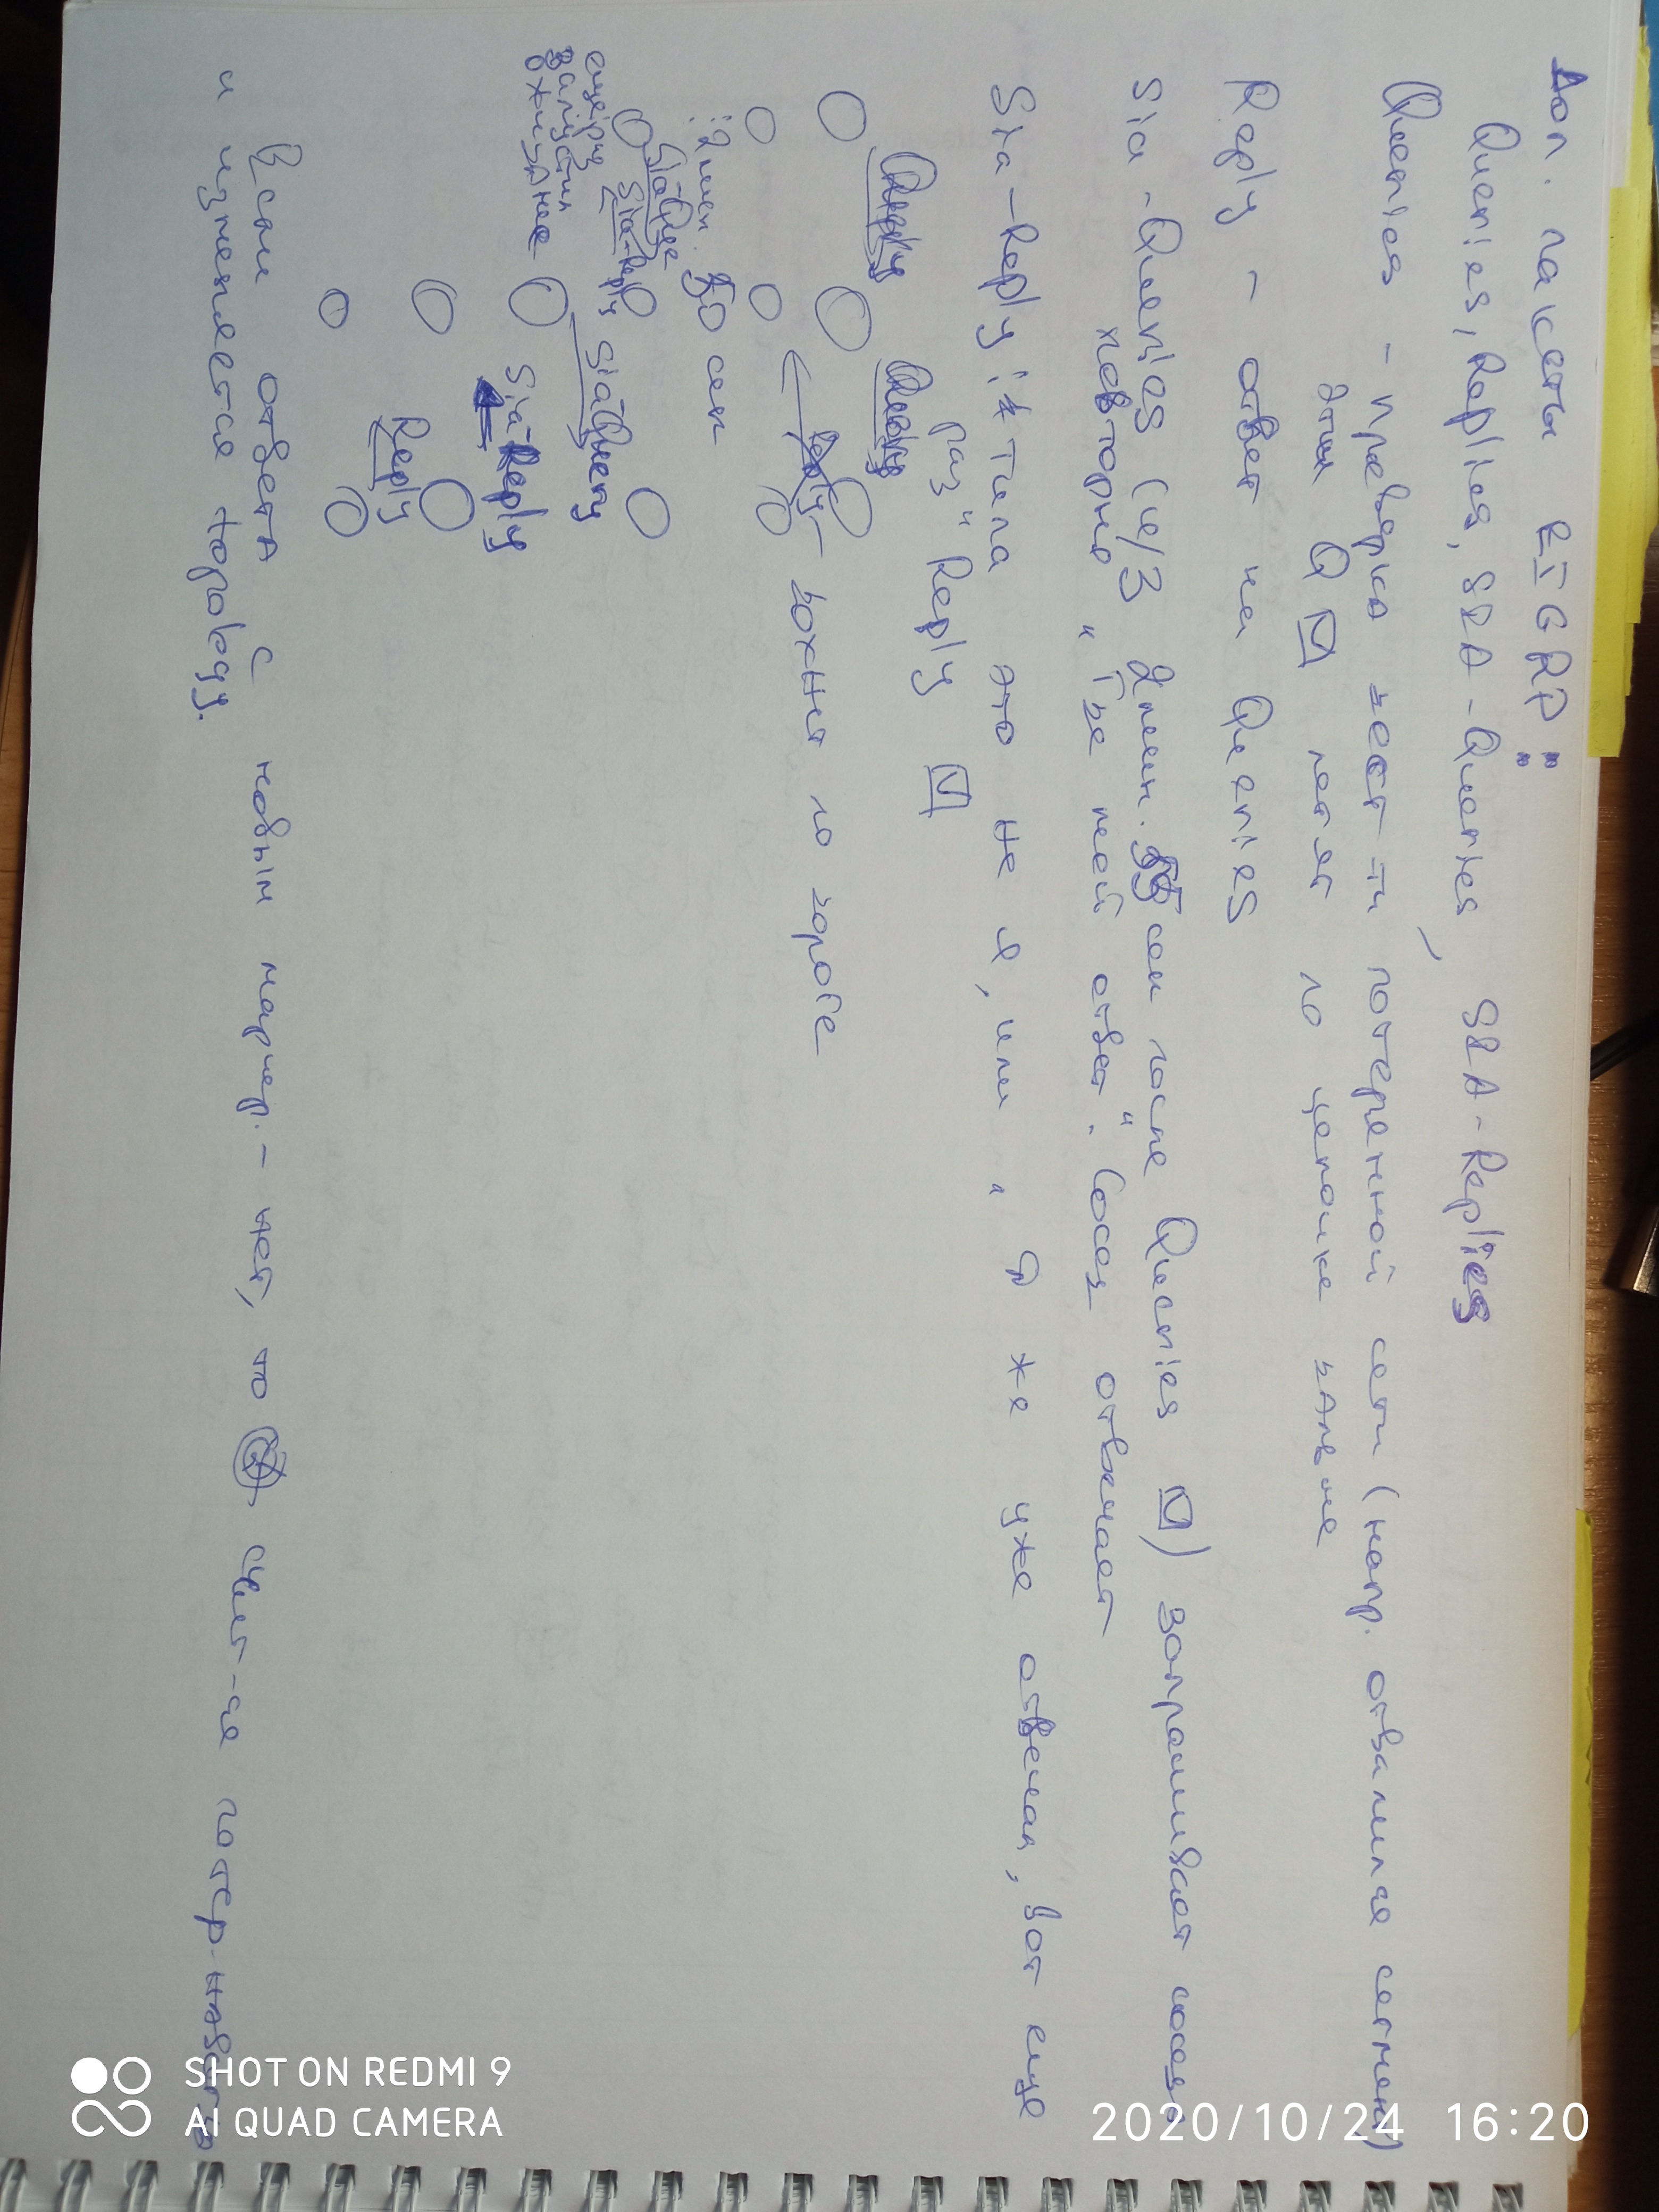 Доп. пакеты EIGRP:
Queries, Replies, SIA-Queries, SIA-Replies
Queries - проверка дост-ти потеренной сети (напр. отвалился сегмент)
Эти Q летят по цепочке дальше
Reply - ответ на Queries
Sia-Queries (ч/з 2 мин. сек после Queries ) запрашивает соседа
повторно „Где мой ответ". Сосед отвечает
Sia-Reply: типа это не я, или „Я же уже отвечал, вот еще
раз" Reply
Query Query
Reply дохнет по дороге
2 мин. 50 сек
Sia-Que
Sia-Reply
Sia-Query
еще раз
запустил
ожидание
Sia-Reply
Reply
Если ответа с новым маршр. - нет, то счит-ся потер. навсегда
и изменяется topology.
2020/10/24 16:20
SHOT ON REDMI 9
AI QUAD CAMERA